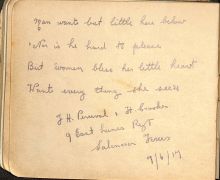 Man wants but little here below
Nor is he hard to please
But women bless her little heart
Wants every thing she sees
J H. Percival & H.
9 East Lancs Regt
Salonica
9/6/17